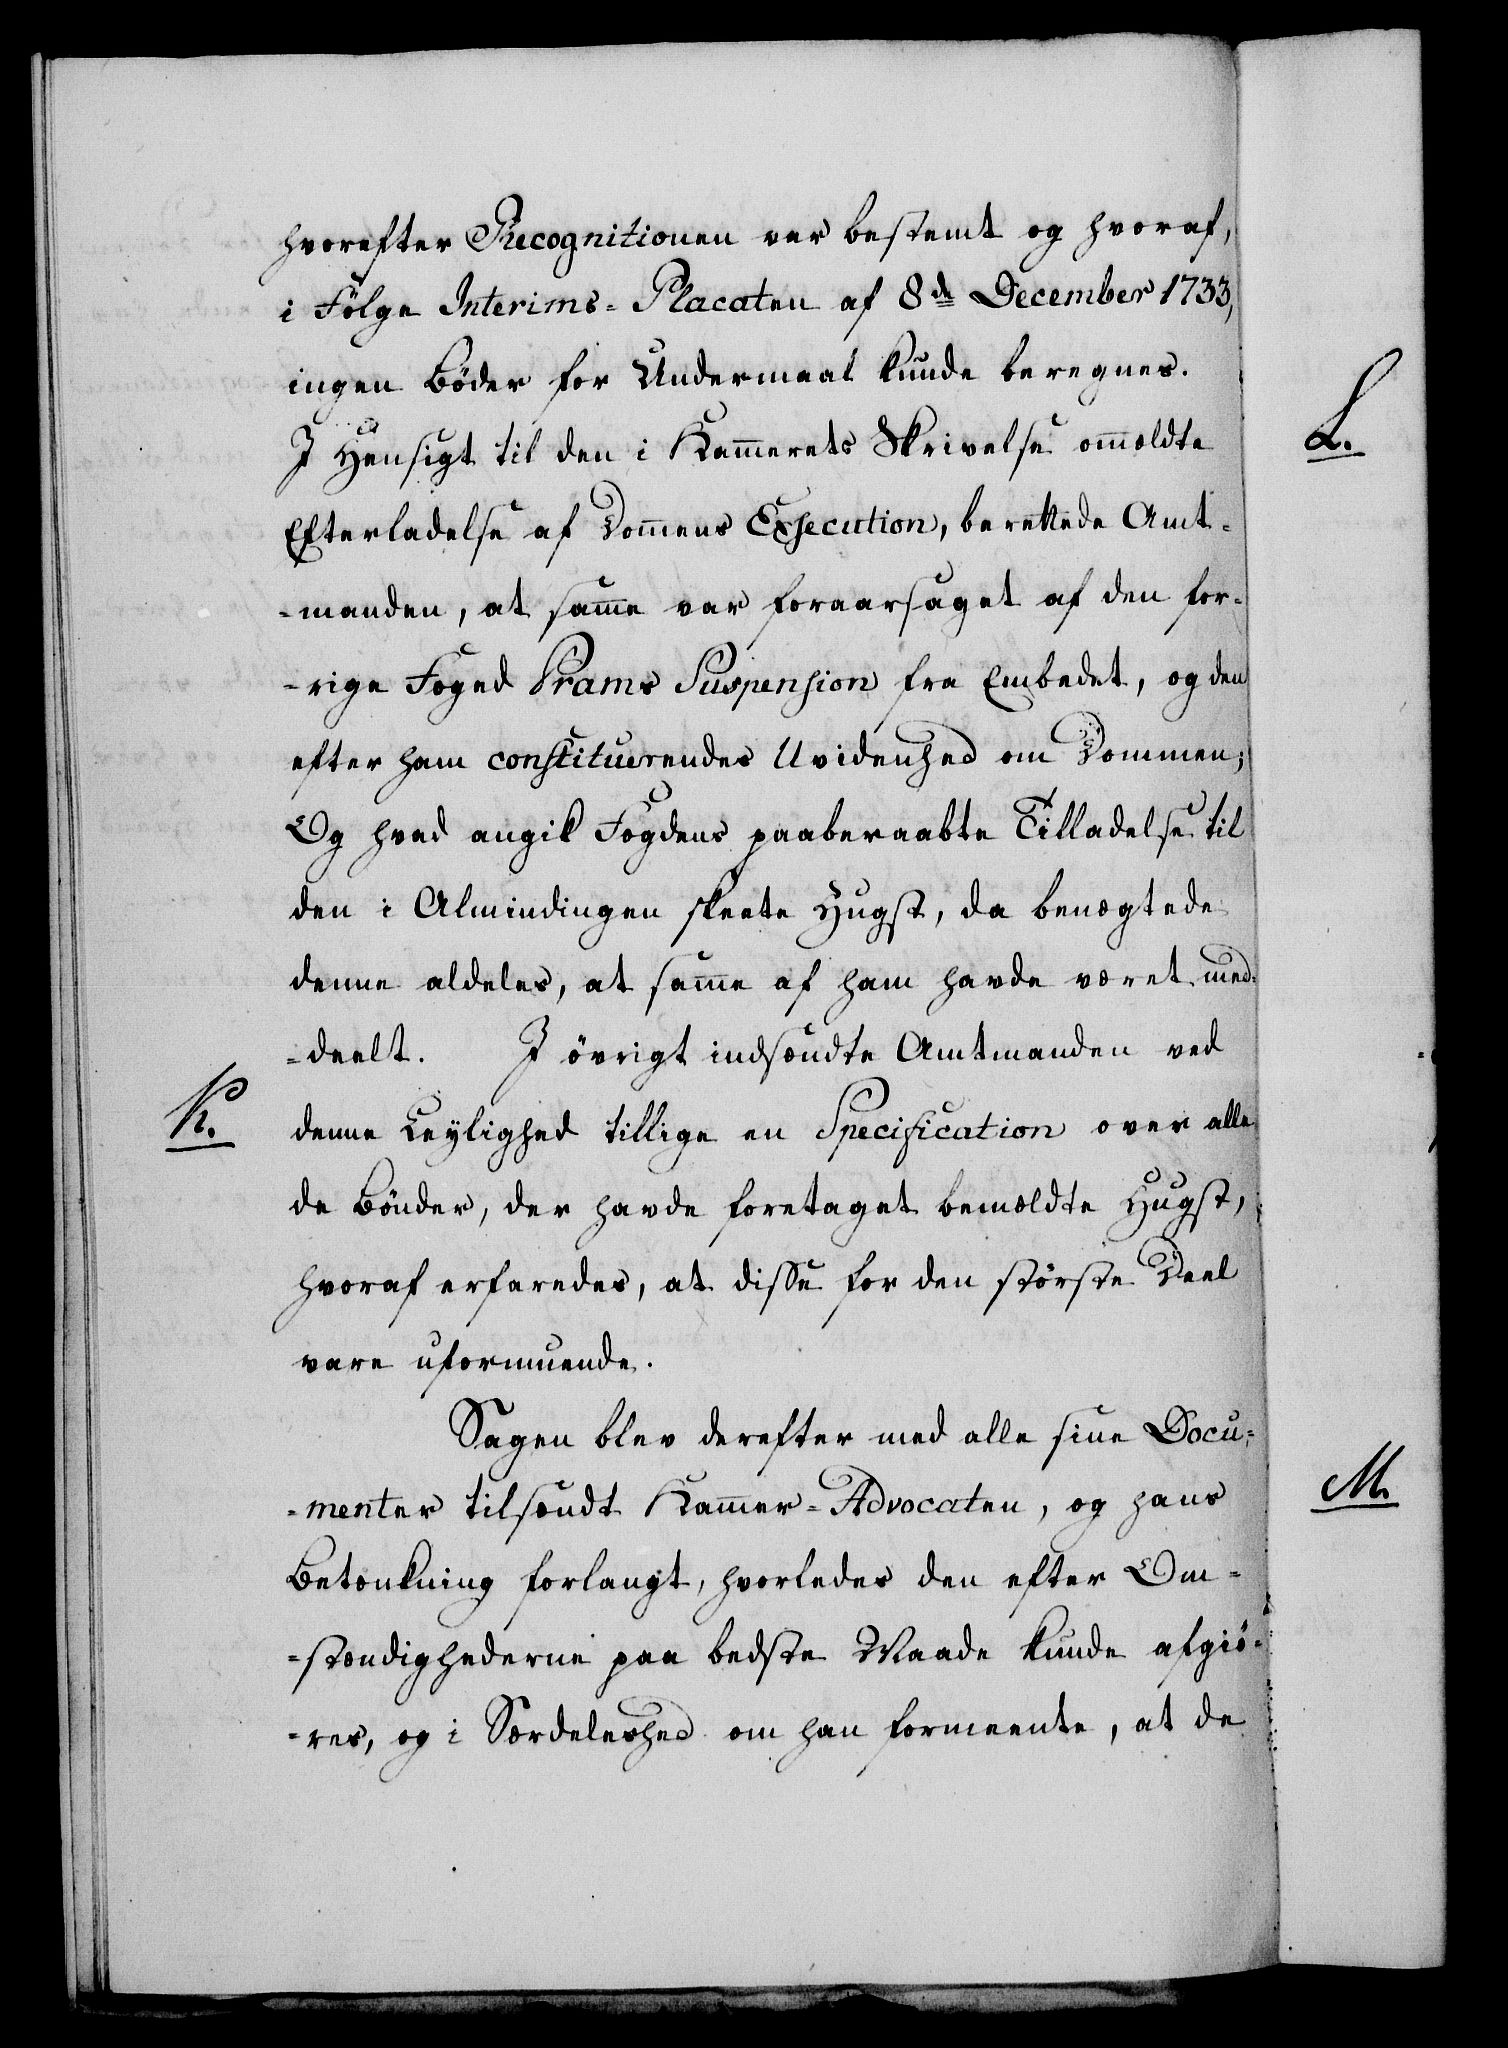 hvorefter Recognitionen var bestemt og hvoraf,
i Følge Interims-Placaten af 8de December 1733,
ingen Bøder for Undermaal kunde beregnes.
I Hensigt til den i Kammerets Skrivelse ommeldte
Efterladelse af Dommens Execution, berettede Amt-
-manden, at samme var foraarsaget af den for-
-rige Foged Prams Suspension fra Embedet, og den
efter ham constituerendes Uvidenhed om Dommen;
Og hvad angik Fogdens paaberaabte Tilladelse til
den i Almindingen skeete Hugst, da benægtede
denne aldeles, at samme af ham havde været med-
-deelt. I øvrigt indsendte Amtmanden ved
K.
denne Leylighed tillige en Specification over alle
de Bønder, der havde foretaget bemeldte Hugst,
hvoraf erfaredes, at disse for den største Deel
vare uformuende.
Sagen blev derefter med alle sine Docu-
-menter tilsendt Kammer-Advocaten, og hans
Betænkning forlangt, hvorledes den efter Om-
-stændighederne paa bedste Maade kunde afgiø-
-res, og i Særdeleshed om han formeente, at de
L.
M.